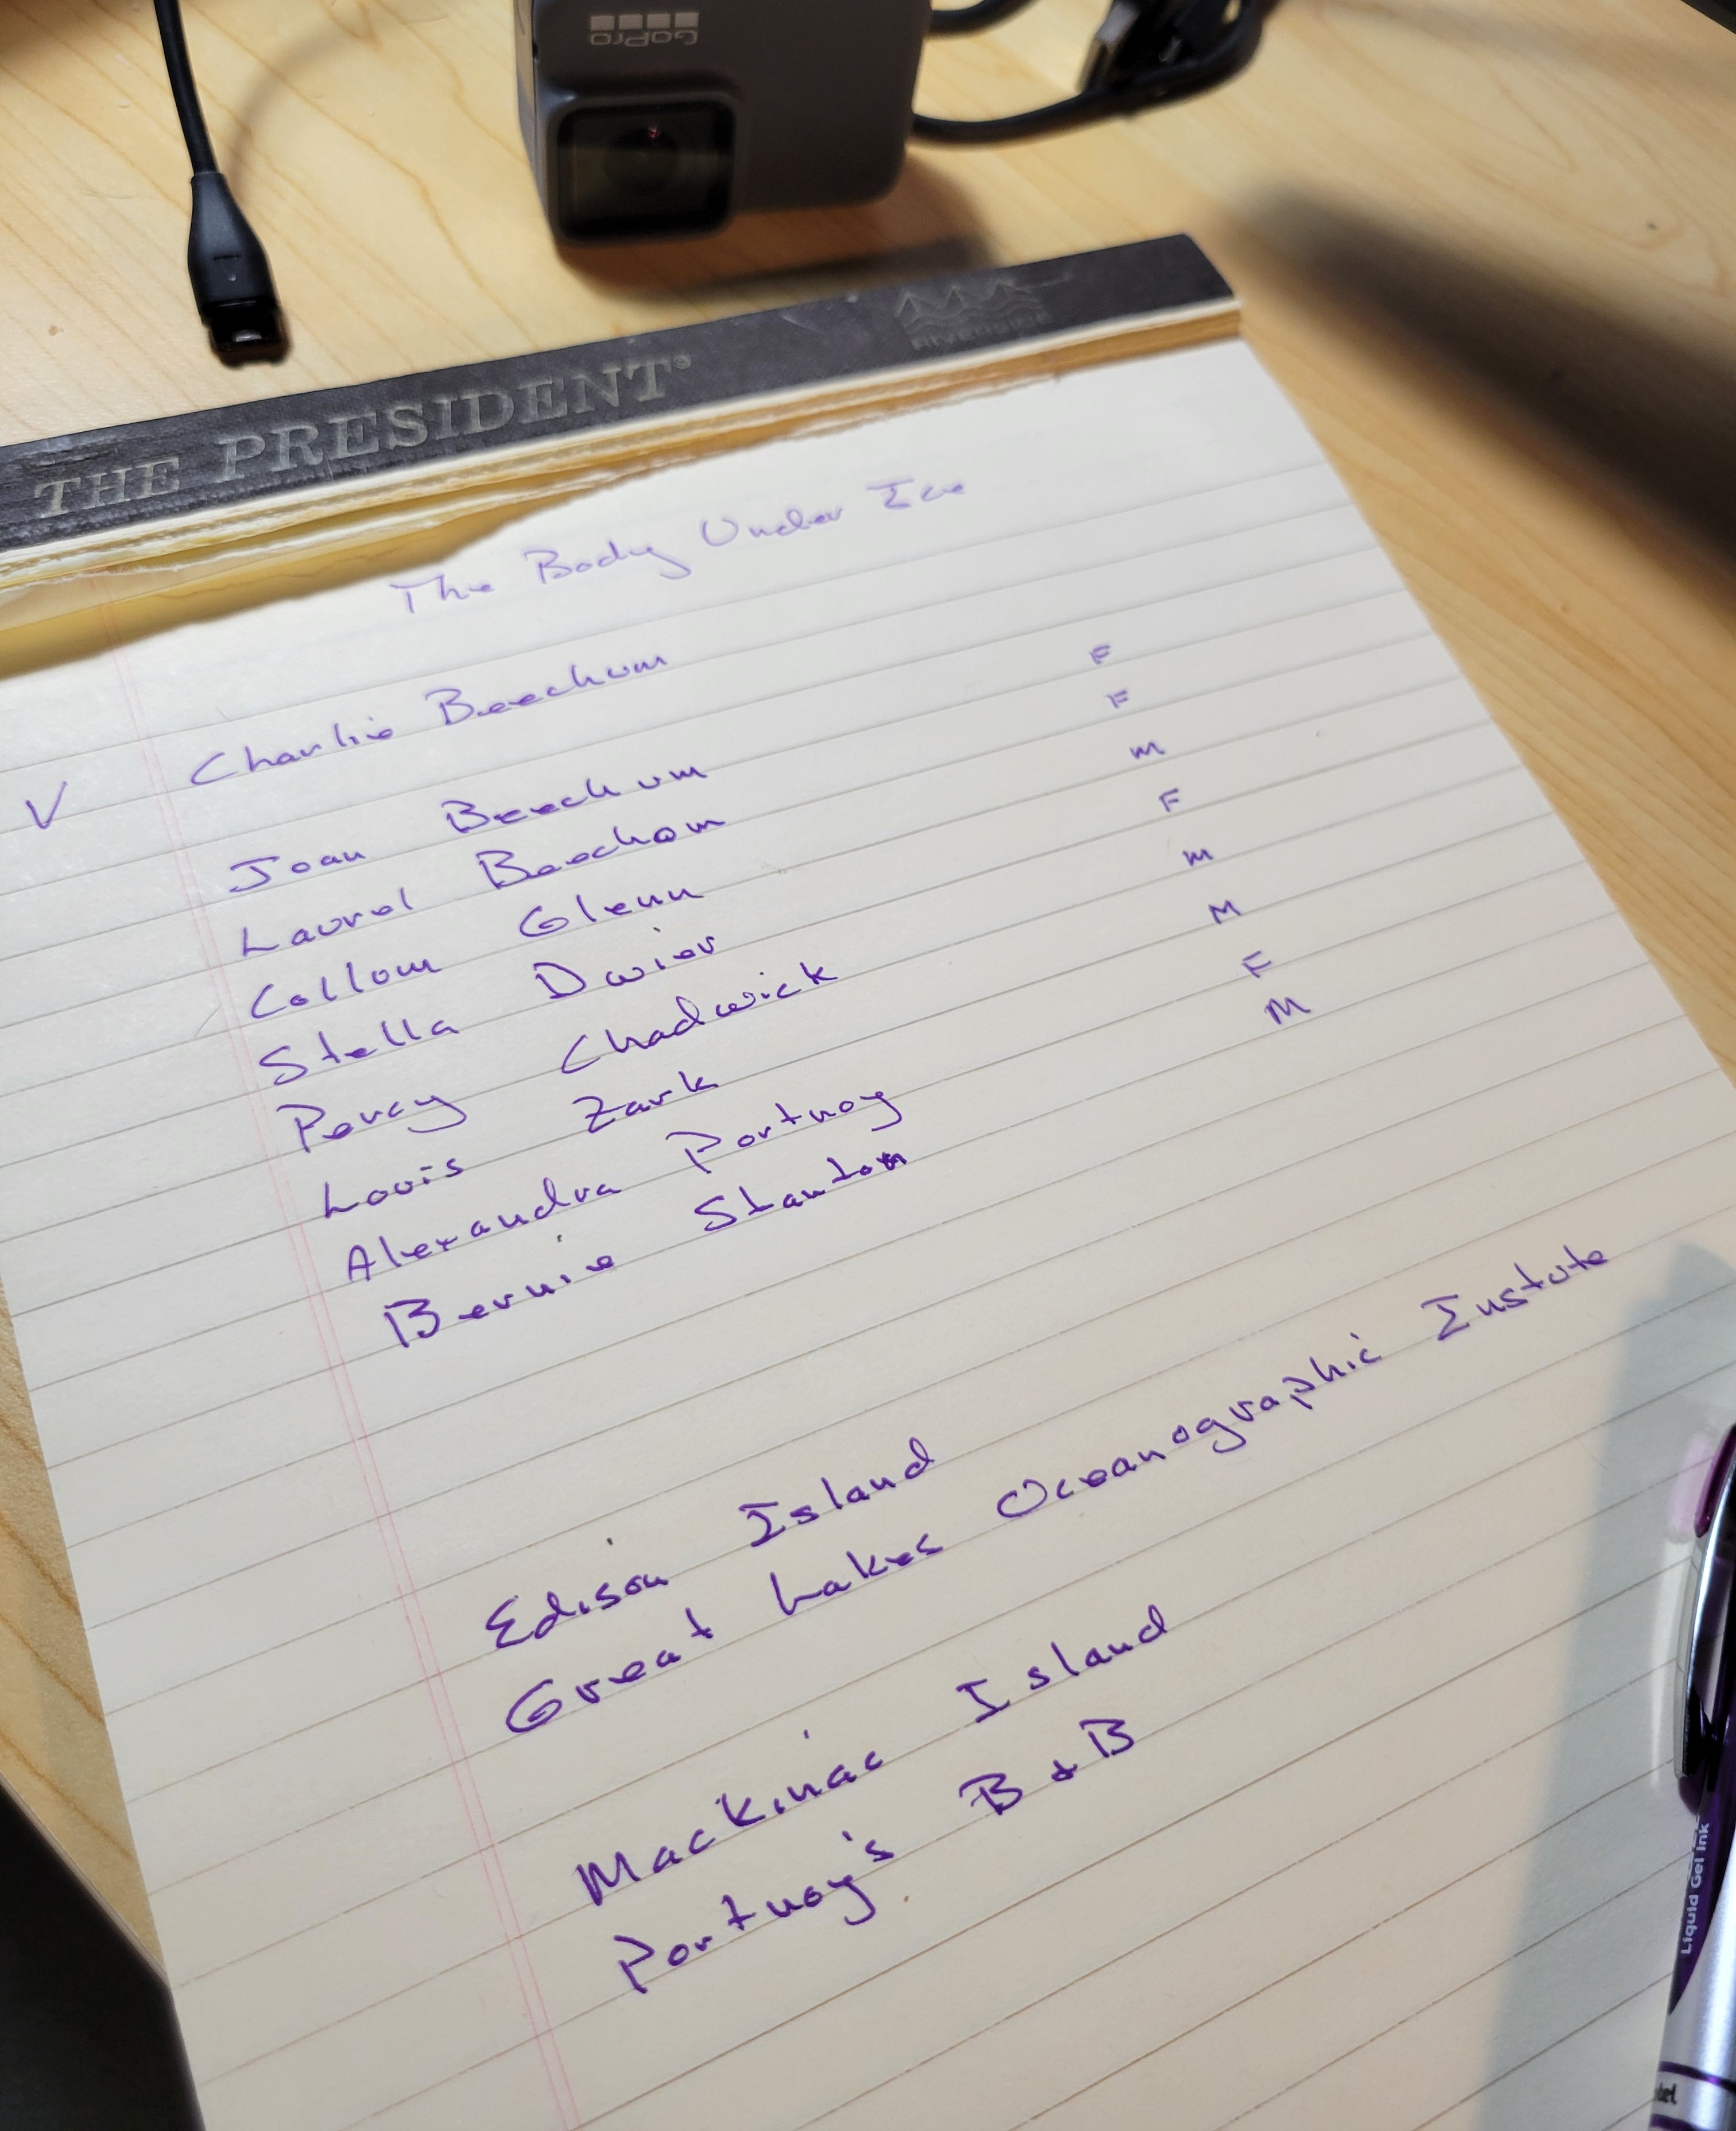 GoPro
THE PRESIDENT®
RIVERSIDE
The Body Under Ice
V Charlie Beechum
Joan Beechum F
Laurel Beechum F
Callum Glenn M
Stella Dwier F
Percy Chadwick M
Louis Zark M
Alexandra Portnoy F
Bernie Stanton M
Edison Island
Great Lakes Oceanographic Instute
Mackinac Island
Portnoy's B & B
Liquid Gel Ink